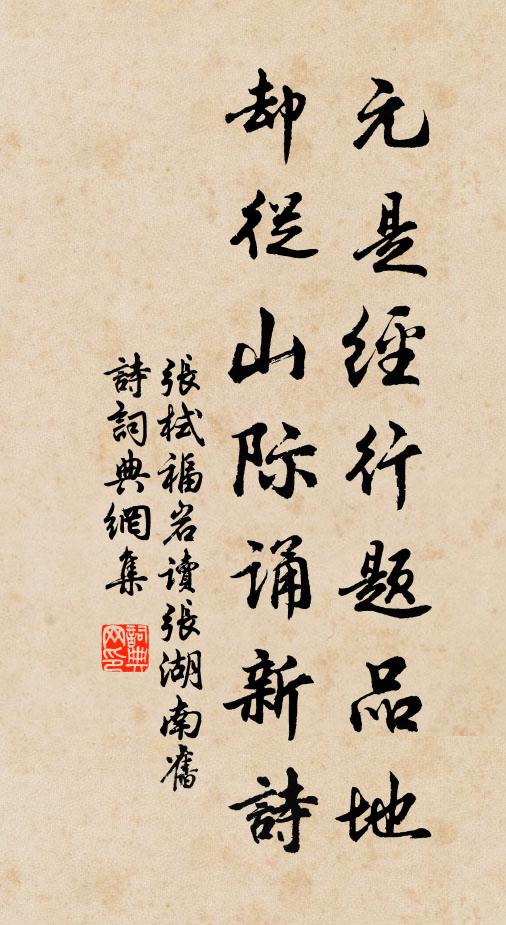 元是經行题品地
却從山际诵新詩
張栻福岩读張湖南舊
詩詞典網集
詞典网印